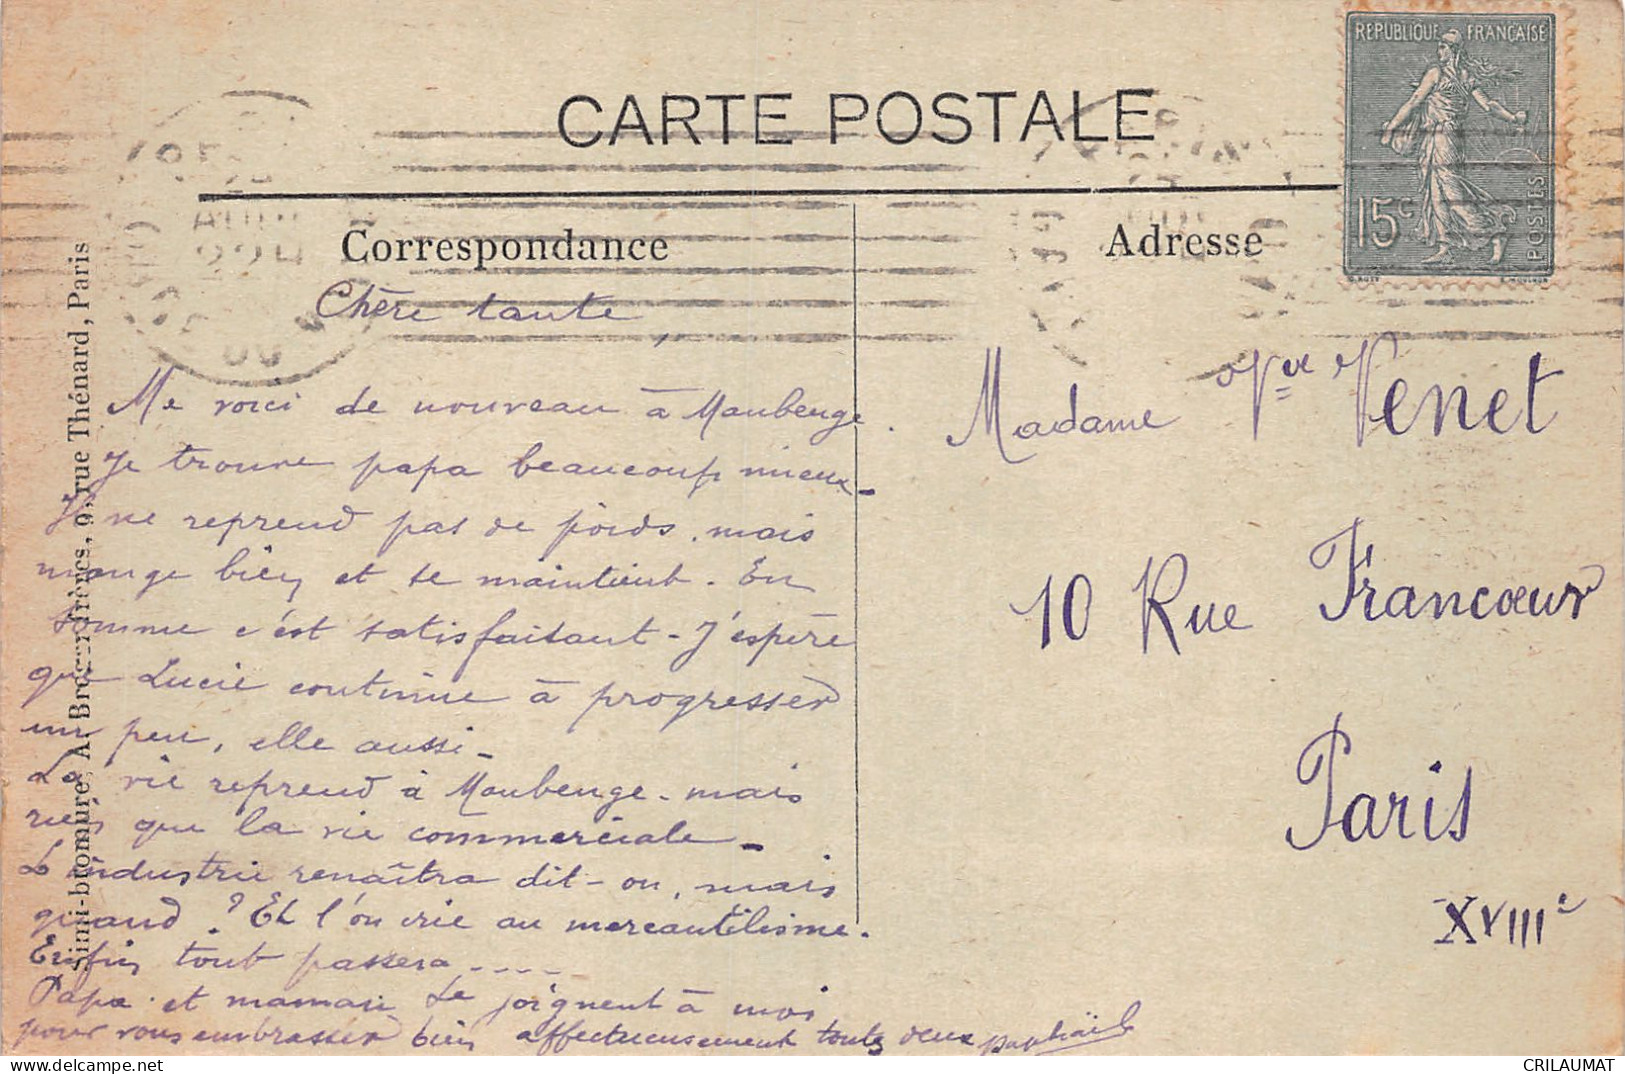 CARTE POSTALE
REPUBLIQUE FRANÇAISE
15c
POSTES
Correspondance
Adresse
Chère tante,
Me voici de nouveau à Maubeuge.
Je trouve papa beaucoup mieux-
Il ne reprend pas de poids, mais
mange bien et se maintient. En
somme c'est satisfaisant - J'espère
que Lucie continue à progresser
un peu, elle aussi-
La vie reprend à Maubeuge - mais
rien que la vie commerciale -
L'industrie renaîtra dit-on, mais
quand ? Et l'on crie au mercantilisme.
Enfin tout passera ----
Papa et maman se joignent à moi
pour vous embrasser bien affectueusement toutes deux Raphaël
Madame Vve Venet
10 Rue Francœur
Paris
XVIIIe
Simi-bromure, A. Breger frères, 9, rue Thénard, Paris
CRILAUMAT